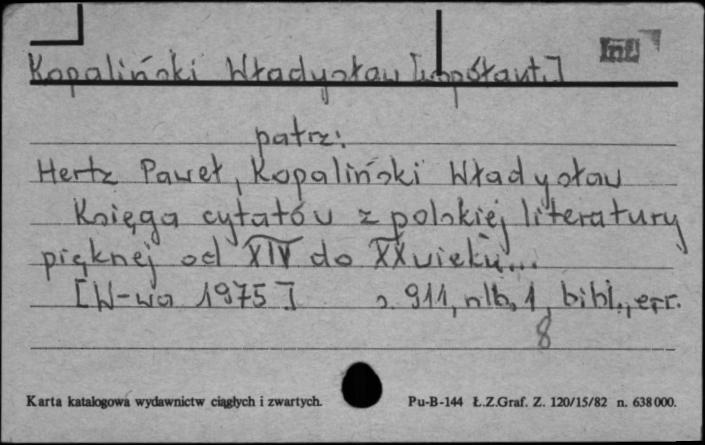 Kopaliński Władysław [współaut.] Inf.
patrz:
Hertz Paweł, Kopaliński Władysław
Księga cytatów z polskiej literatury
pięknej od XIV do XX wieku...
[W-wa 1975] s. 911, nlb. 1, bibl., err.
8
Karta katalogowa wydawnictw ciągłych i zwartych. Pu-B-144 Ł.Z.Graf. Z. 120/15/82 n. 638000.